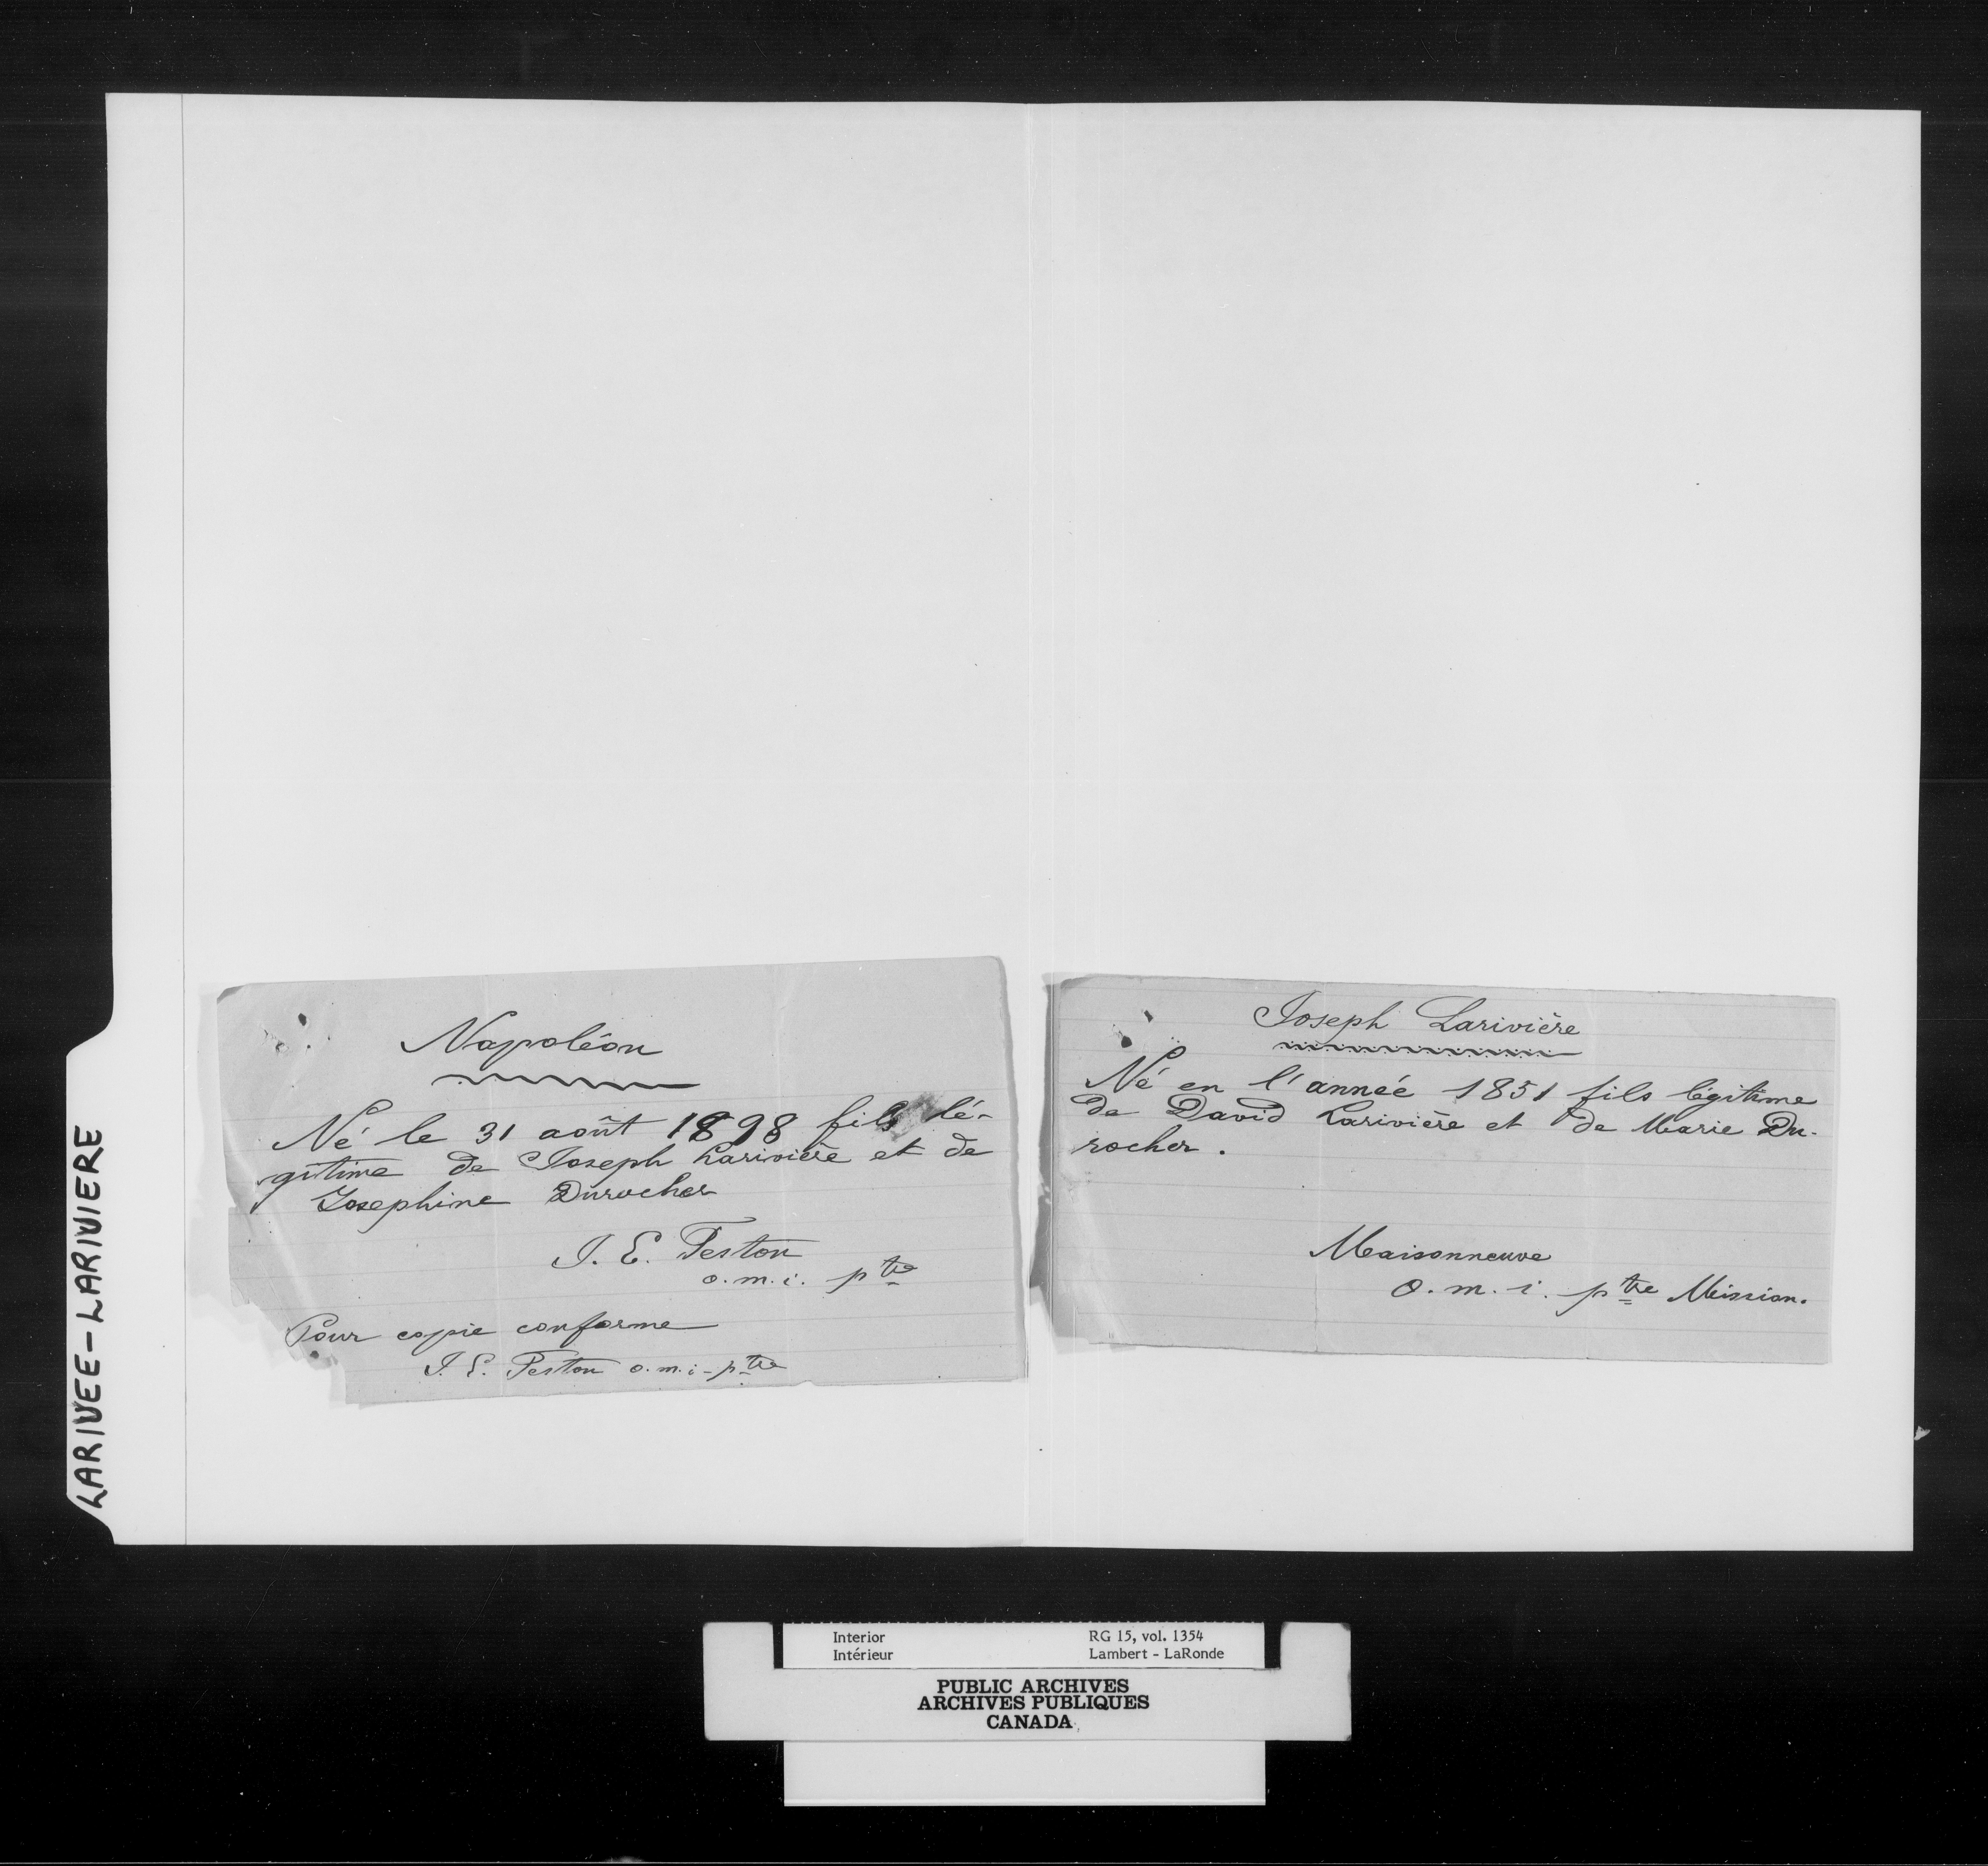 LARIVEE-LARIVIERE
Napoléon
Né le 31 août 1898 fils lé-
gitime de Joseph Larivière et de
Josephine Durocher
J. E. Teston
o.m.i. ptre
Pour copie conforme
J. E. Teston o.m.i-ptre
Joseph Larivière
Né en l'année 1851 fils légitime
de David Larivière et de Marie Du-
rocher.
Maisonneuve
o.m.i. ptre Mission.
Interior
Intérieur
RG 15, vol. 1354
Lambert - LaRonde
PUBLIC ARCHIVES
ARCHIVES PUBLIQUES
CANADA